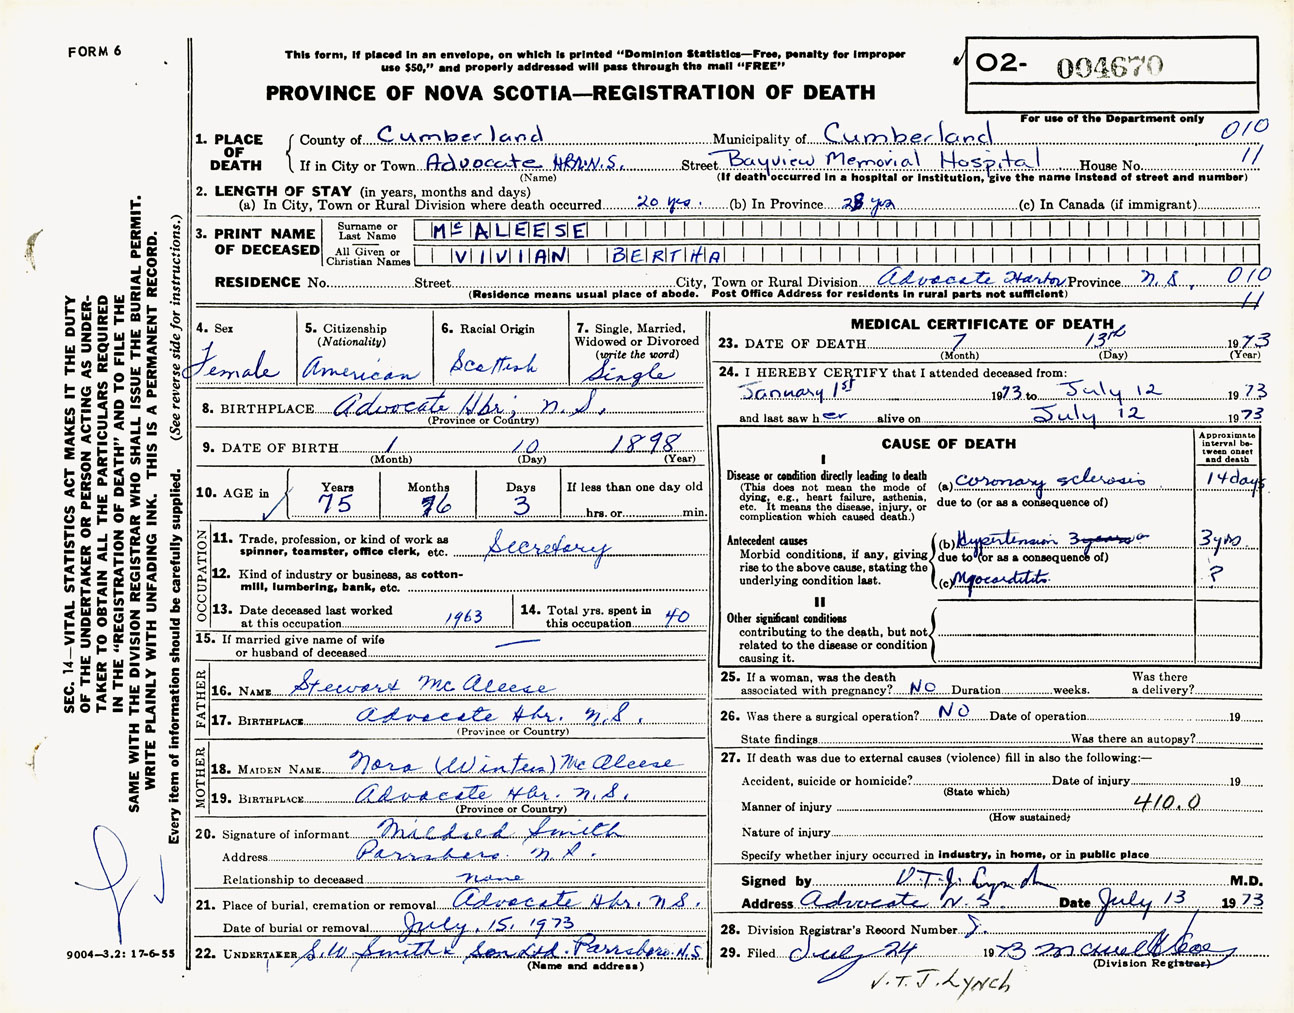 FORM 6
This form, if placed in an envelope, on which is printed "Dominion Statistics—Free, penalty for improper
use $50," and properly addressed will pass through the mail "FREE"
O2- 004670
For use of the Department only
PROVINCE OF NOVA SCOTIA—REGISTRATION OF DEATH
010
11
1. PLACE OF DEATH
County of Cumberland Municipality of Cumberland
If in City or Town Advocate Hbr. N.S. Street Bayview Memorial Hospital House No.
(Name) (If death occurred in a hospital or institution, give the name instead of street and number)
2. LENGTH OF STAY (in years, months and days)
(a) In City, Town or Rural Division where death occurred 20 yrs. (b) In Province 28 yrs (c) In Canada (if immigrant)
3. PRINT NAME OF DECEASED
Surname or Last Name McALEESE
All Given or Christian Names VIVIAN BERTHA
RESIDENCE No. Street City, Town or Rural Division Advocate Harbor Province N.S. 010
(Residence means usual place of abode. Post Office Address for residents in rural parts not sufficient) 11
4. Sex Female
5. Citizenship (Nationality) American
6. Racial Origin Scottish
7. Single, Married, Widowed or Divorced (write the word) Single
8. BIRTHPLACE Advocate Hbr; N.S.
(Province or Country)
9. DATE OF BIRTH 1 10 1898
(Month) (Day) (Year)
10. AGE in Years 75 Months 6 Days 3 If less than one day old
hrs. or min.
OCCUPATION
11. Trade, profession, or kind of work as spinner, teamster, office clerk, etc. Secretary
12. Kind of industry or business, as cotton-mill, lumbering, bank, etc.
13. Date deceased last worked at this occupation 1963
14. Total yrs. spent in this occupation 40
15. If married give name of wife or husband of deceased —
FATHER
16. NAME Stewart McAleese
17. BIRTHPLACE Advocate Hbr. N.S.
(Province or Country)
MOTHER
18. MAIDEN NAME Nora (Winters) McAleese
19. BIRTHPLACE Advocate Hbr. N.S.
(Province or Country)
20. Signature of informant Mildred Smith
Address Parrsboro. N.S.
Relationship to deceased none
21. Place of burial, cremation or removal Advocate Hbr. N.S.
Date of burial or removal July. 15. 1973
22. UNDERTAKER S.W Smith & Son Ltd. Parrsboro. N.S
(Name and address)
MEDICAL CERTIFICATE OF DEATH
23. DATE OF DEATH 7 13th 1973
(Month) (Day) (Year)
24. I HEREBY CERTIFY that I attended deceased from:
January 1st 1973 to July 12 1973
and last saw her alive on July 12 1973
CAUSE OF DEATH
Approximate interval between onset and death
I
Disease or condition directly leading to death
(This does not mean the mode of dying, e.g., heart failure, asthenia, etc. It means the disease, injury, or complication which caused death.)
(a) coronary sclerosis 14 days
due to (or as a consequence of)
Antecedent causes
Morbid conditions, if any, giving rise to the above cause, stating the underlying condition last.
(b) Hypertension 3 years 3 yrs.
due to (or as a consequence of)
(c) Myocarditits. ?
II
Other significant conditions
contributing to the death, but not related to the disease or condition causing it.
25. If a woman, was the death associated with pregnancy? NO Duration weeks. Was there a delivery?
26. Was there a surgical operation? NO Date of operation 19
State findings Was there an autopsy?
27. If death was due to external causes (violence) fill in also the following:—
Accident, suicide or homicide? Date of injury 19
(State which)
Manner of injury 410.0
(How sustained)
Nature of injury
Specify whether injury occurred in industry, in home, or in public place
Signed by V.T.J. Lynch M.D.
Address Advocate N.S Date July 13 1973
28. Division Registrar's Record Number 8.
29. Filed July 24 1973
(Division Registrar)
V.T.J. LYNCH
SEC. 14—VITAL STATISTICS ACT MAKES IT THE DUTY
OF THE UNDERTAKER OR PERSON ACTING AS UNDER-
TAKER TO OBTAIN ALL THE PARTICULARS REQUIRED
IN THE "REGISTRATION OF DEATH" AND TO FILE THE
SAME WITH THE DIVISION REGISTRAR WHO SHALL ISSUE THE BURIAL PERMIT.
WRITE PLAINLY WITH UNFADING INK. THIS IS A PERMANENT RECORD.
Every item of information should be carefully supplied. (See reverse side for instructions.)
9004—3.2: 17-6-55